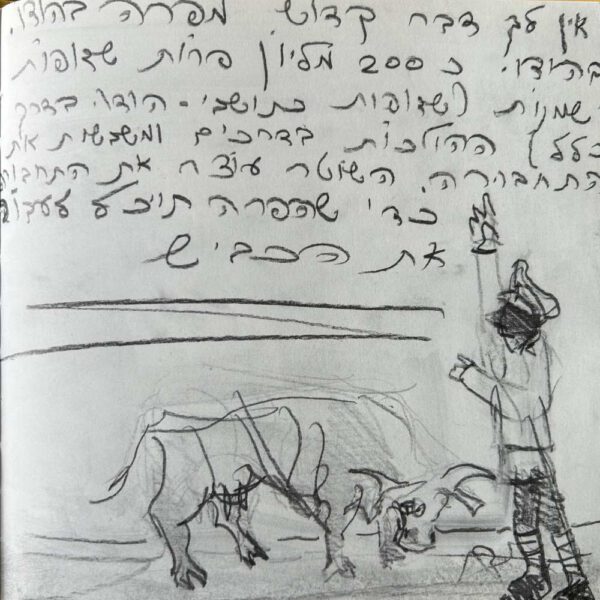 אין לך דבר קדוש מפרה בהודו.
בהודו. כ 200 מליון פרות שדופות
ושמנות (שדופות כתושבי - הודו בדרך
כלל) ההולכות בדרכים ומשבשות את
התחבורה. השוטר עוצר את התחבורה
כדי שהפרה תוכל לעבור
את הכביש